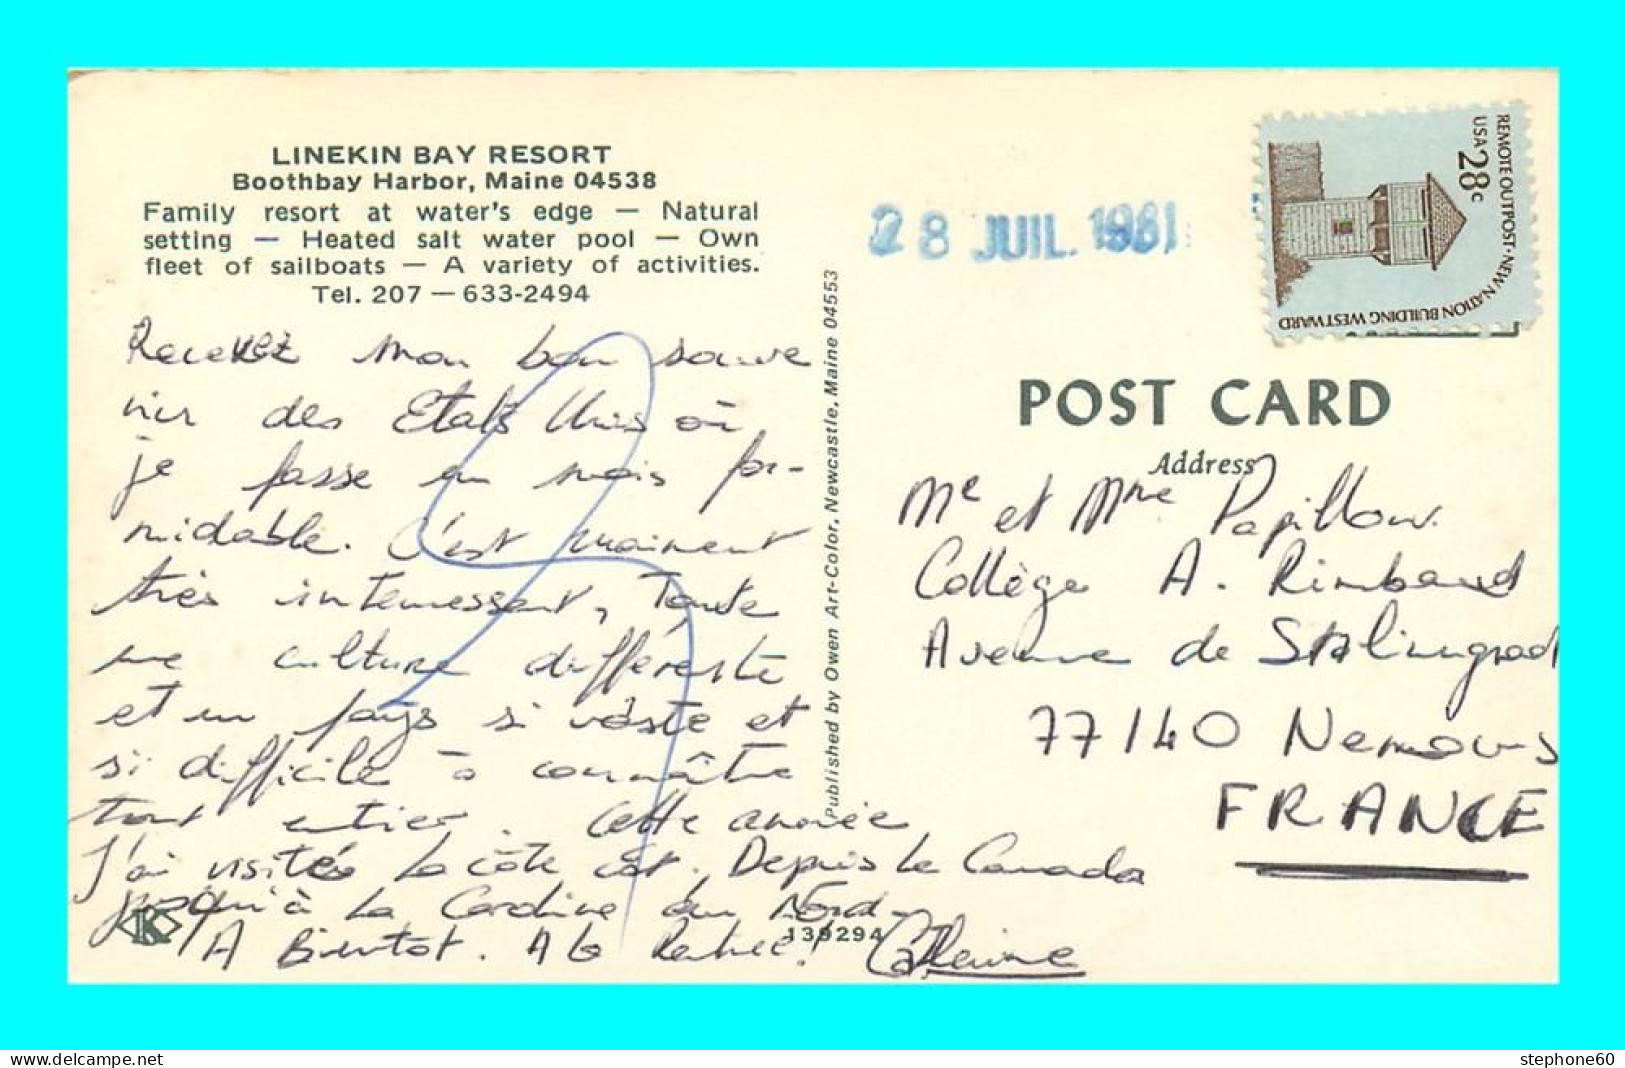 LINEKIN BAY RESORT
Boothbay Harbor, Maine 04538
Family resort at water's edge — Natural
setting — Heated salt water pool — Own
fleet of sailboats — A variety of activities.
Tel. 207 — 633-2494
Recevez mon bon souve
nir des Etats Unis où
je passe un mois for-
midable. C'est vraiment
très interressant, Toute
une culture différente
et un pays si vaste et
si difficile à connaître
tout entier. Cette année
J'ai visitée la côte est. Depuis le Canada
jusqu'à la Caroline du Nord.
A Bientot. A la Rentrée! Catherine
K
139294
Published by Owen Art-Color, Newcastle, Maine 04553
28 JUIL. 1981
REMOTE OUTPOST·NEW NATION BUILDING WESTWARD
USA 28c
POST CARD
Address
Mr et Mme Papillon.
Collège A. Rimbaud
Avenue de Stalingrad
77140 Nemours
FRANCE
www.delcampe.net
stephone60